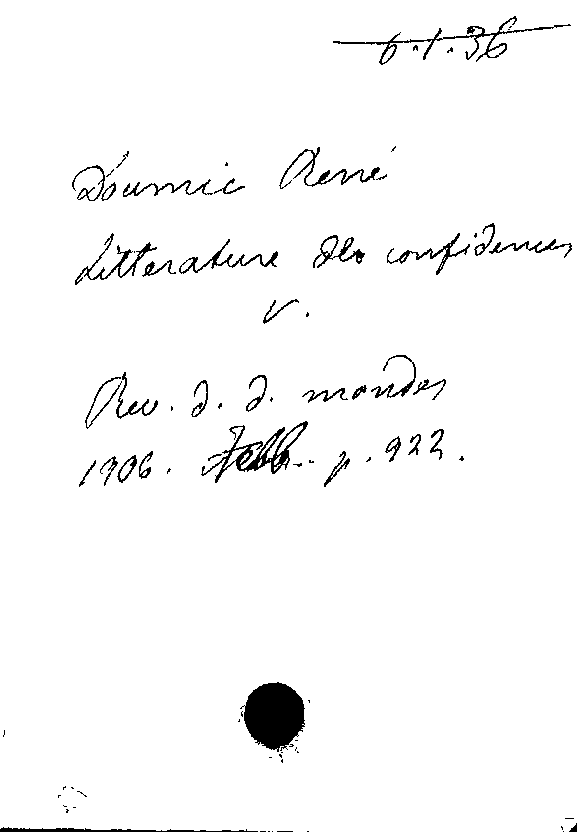 6.1.36
Doumic René
Litterature des confidences
v.
Rev. d. d. mondes
1906. Febb.. p. 922.